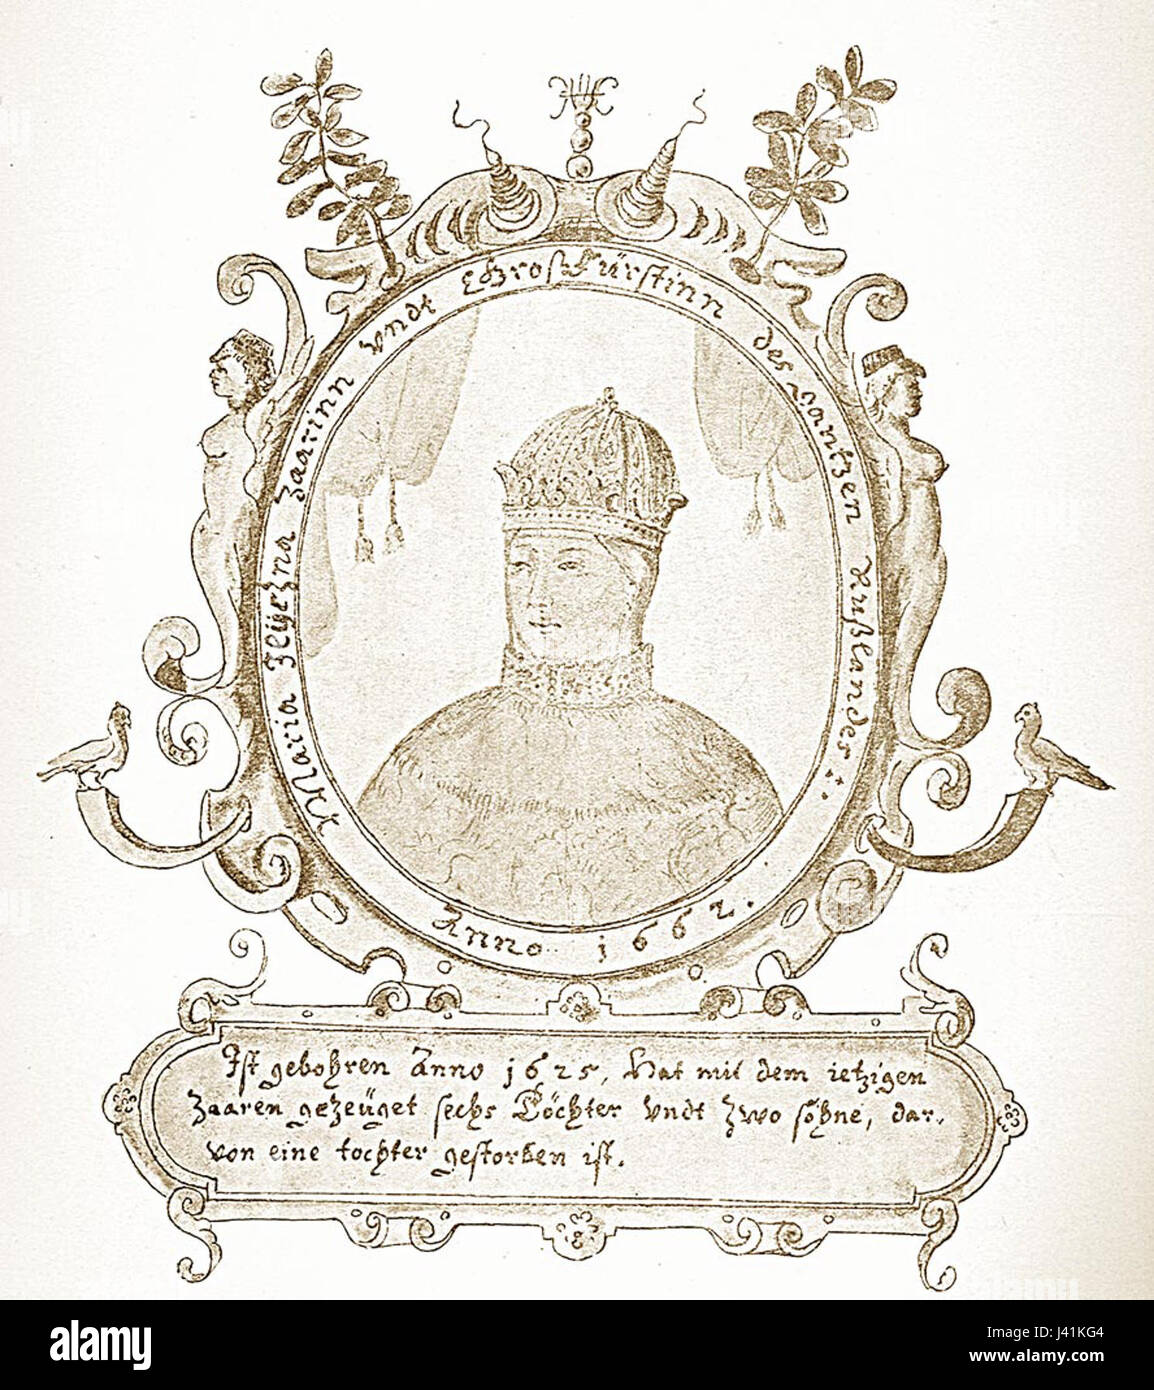 Maria Iliyezna Zaarinn vndt GrosFürstinn des gantzen Rußlandes
Anno 1662.
Ist gebohren Anno 1625, Hat mit dem ietzigen
Zaaren gezeüget sechs Töchter vndt zwo söhne, dar-
von eine tochter gestorben ist.
alamy
Image ID: J41KG4
www.alamy.com